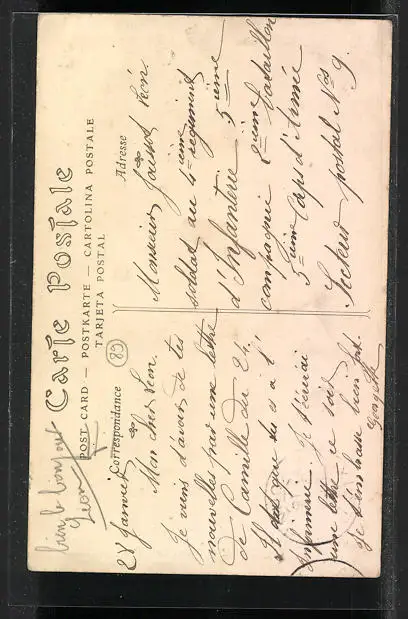 Carte Postale
POST CARD — POSTKARTE — CARTOLINA POSTALE
TARJETA POSTAL
Correspondance
Adresse
80
bien le bonjour
Leon
28 Janvier
Mon cher Leon.
Je viens d'avoir de tes
nouvelles par une lettre
de Camille du 24.
Il dit que tu es à l'
infirmerie. Je t'écrirai
une lettre ce soir
Je t'embrasse bien fort.
Georgette
Monsieur Léon.
soldat au 4ième régiment
d'Infanterie 5ième
compagnie 2ième bataillon
5ième Corps d'Armée
Secteur postal No 9.